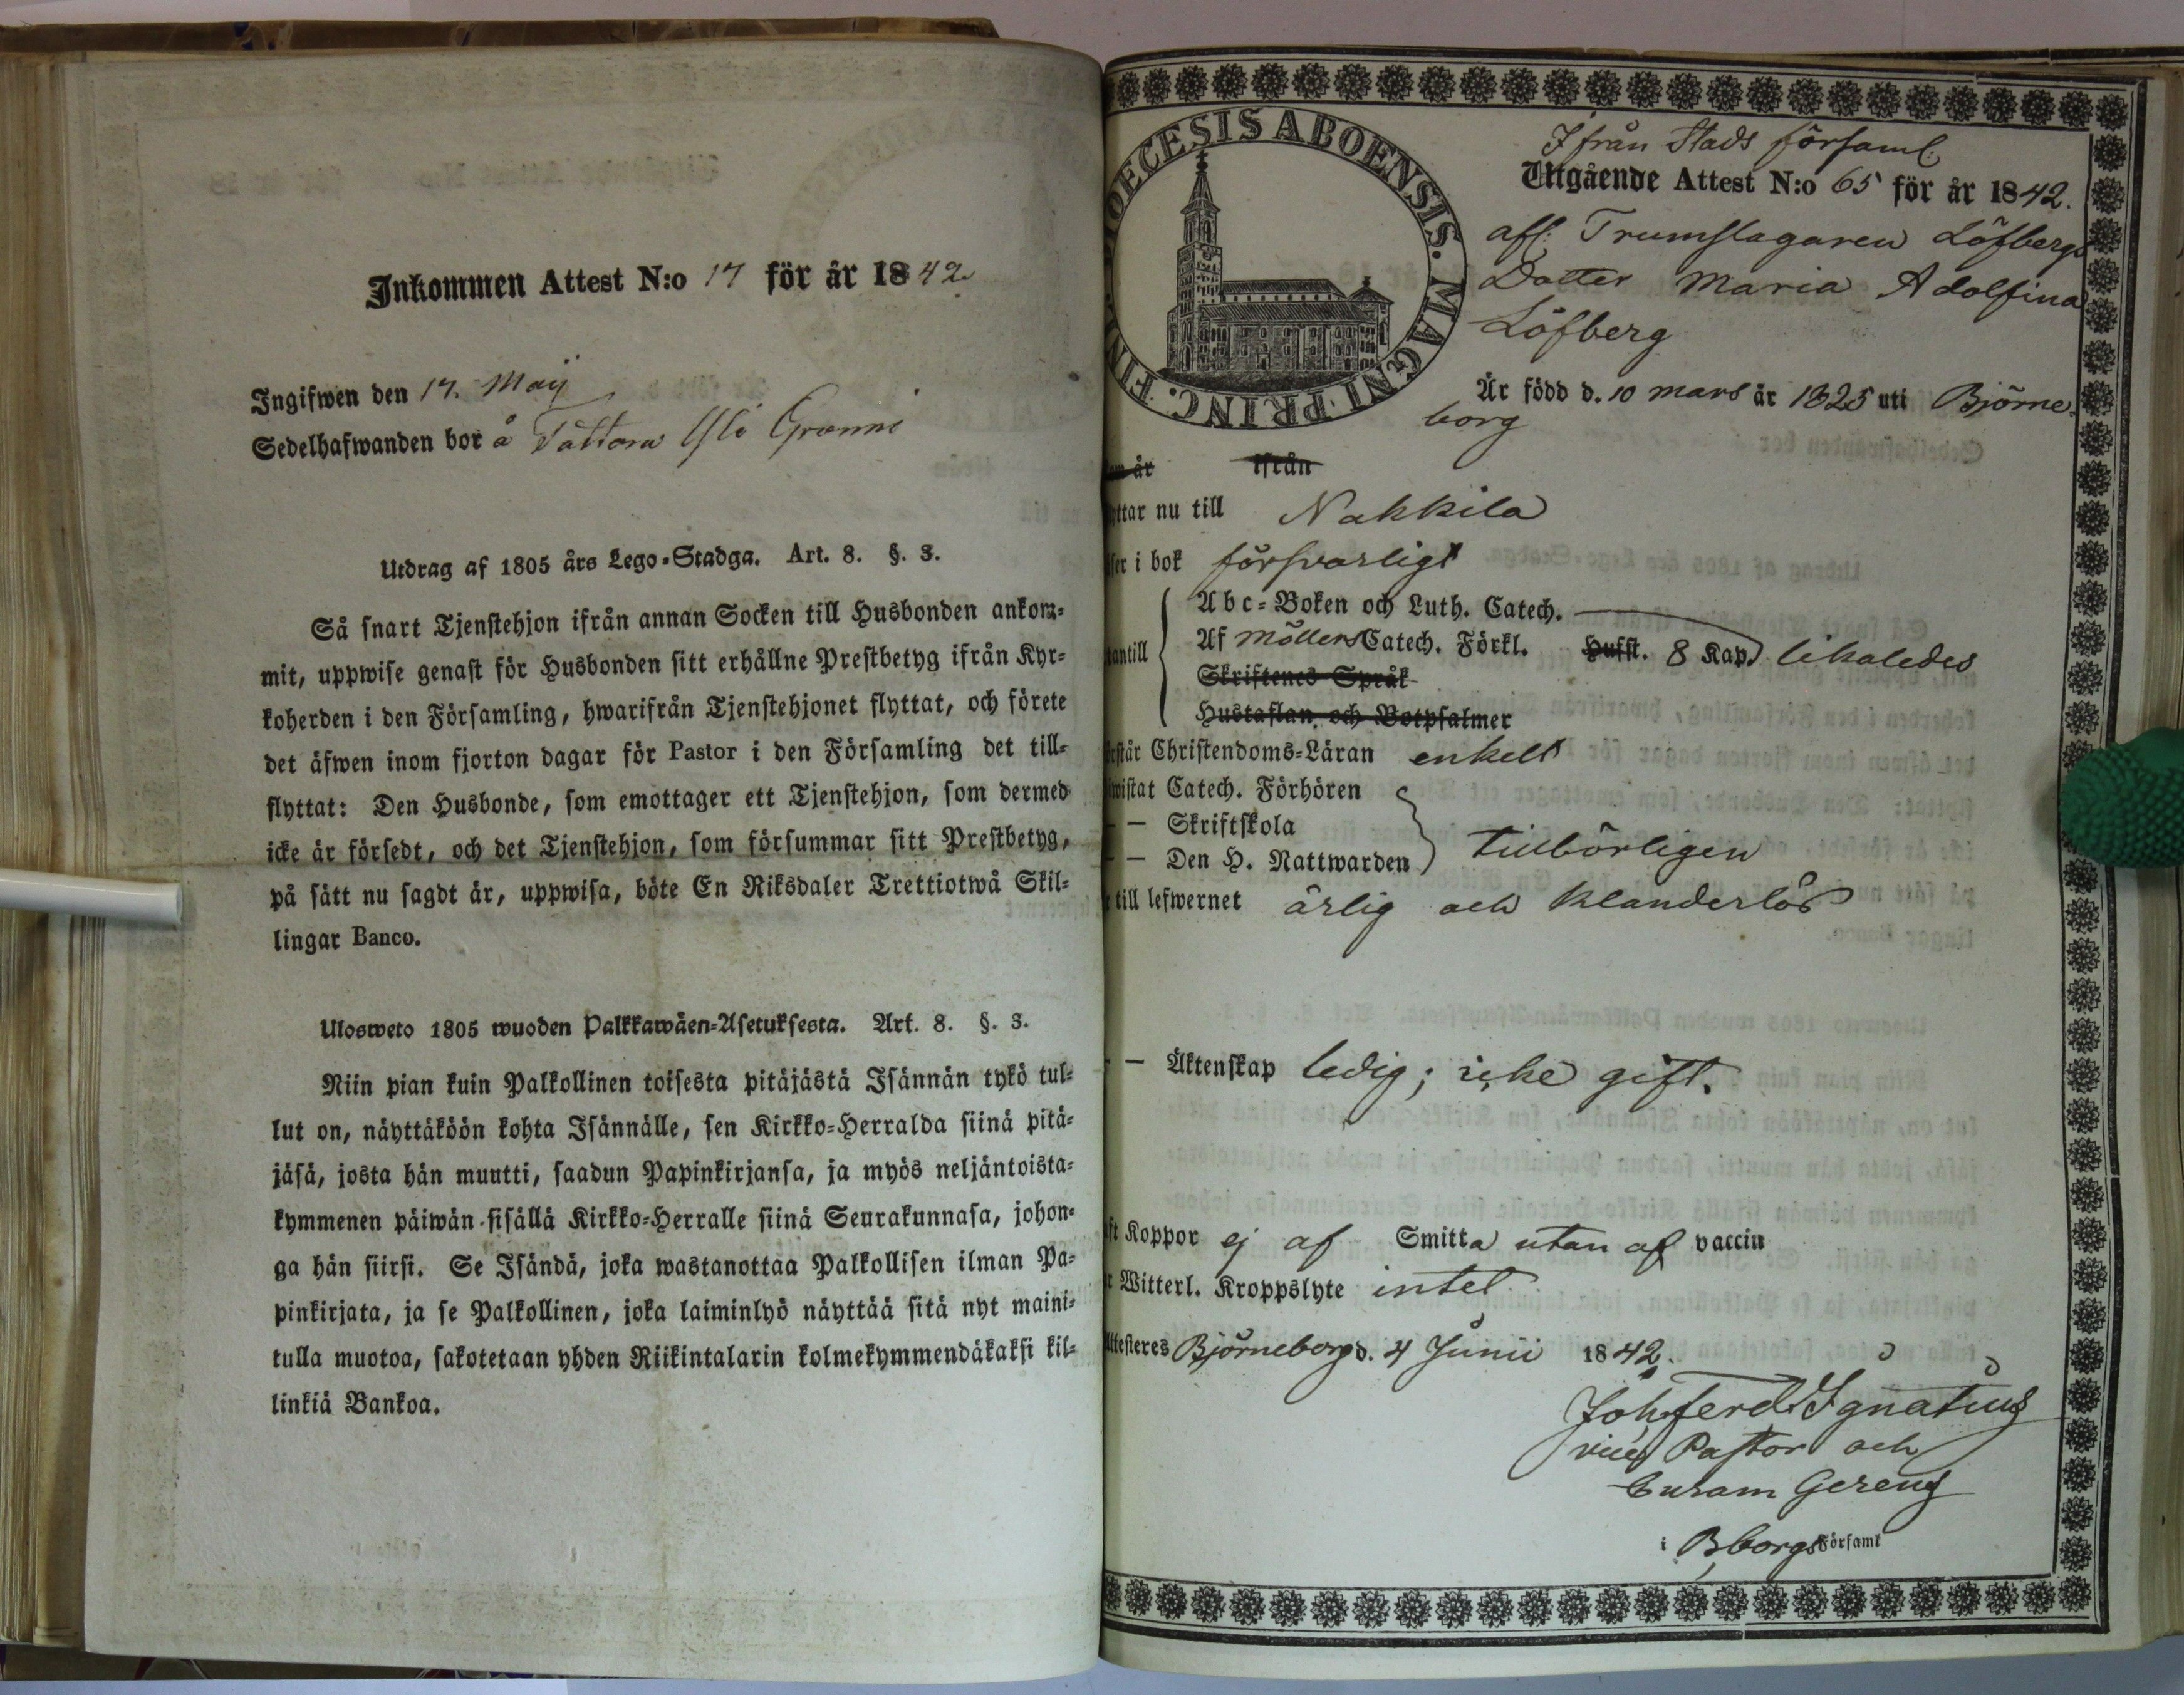 Inkommen Attest N:o 17 för år 1842
Ingifwen den 17. Maij
Sedelhafwanden bor å Tattara Yli Granni
Utdrag af 1805 års Lego-Stadga. Art. 8. §. 3.
Så snart Tjenstehjon ifrån annan Socken till Husbonden ankom-
mit, uppwise genast för Husbonden sitt erhållne Prestbetyg ifrån Kyr-
koherden i den Församling, hwarifrån Tjenstehjonet flyttat, och förete
det äfwen inom fjorton dagar för Pastor i den Församling det till-
flyttat: Den Husbonde, som emottager ett Tjenstehjon, som dermed
icke är försedt, och det Tjenstehjon, som försummar sitt Prestbetyg,
på sätt nu sagdt är, uppwisa, böte En Riksdaler Trettiotwå Skil-
lingar Banco.
Ulosweto 1805 wuoden Palkkawäen-Asetuksesta. Art. 8. §. 3.
Niin pian kuin Palkollinen toisesta pitäjästä Isännän tykö tul-
lut on, näyttäköön kohta Isännälle, sen Kirkko-Herralda siinä pitä-
jäsä, josta hän muutti, saadun Papinkirjansa, ja myös neljäntoista-
kymmenen päiwän sisällä Kirkko-Herralle siinä Seurakunnasa, johon-
ga hän siirsi. Se Isändä, joka wastanottaa Palkollisen ilman Pa-
pinkirjata, ja se Palkollinen, joka laiminlyö näyttää sitä nyt maini-
tulla muotoa, sakotetaan yhden Riikintalarin kolmekymmendäkaksi kil-
linkiä Bankoa.
DIOECESIS ABOENSIS. MAGNI PRINC. FINL.
Ifrån Stads församl:
Utgående Attest N:o 65 för år 1842.
afl: Trumslagaren Löfbergs
Dotter Maria Adolfina
Löfberg
Är född d. 10 mars år 1825 uti Björne-
borg
om år ifrån
yttar nu till Nakkila
äser i bok försvarligt
Abc-Boken och Luth. Catech.
antill Af Möllers Catech. Förkl. Husst. 8 Kap. likaledes
Skriftenes Språk
Hustaflan och Botpsalmer
örstår Christendoms-Läran enkelt
wistat Catech. Förhören
— — Skriftskola
— — Den H. Nattwarden tillbörligen
till lefwernet ärlig och klanderlös
— — Äktenskap ledig; icke gift.
ft Koppor ej af Smitta utan af vaccin
r Witterl. Kroppslyte intet
Attesteres Björneborg d. 4 Junii 1842.
Joh. Ferd. Ignatius
vice Pastor och
Curam Gerens
i Bborgs Församl